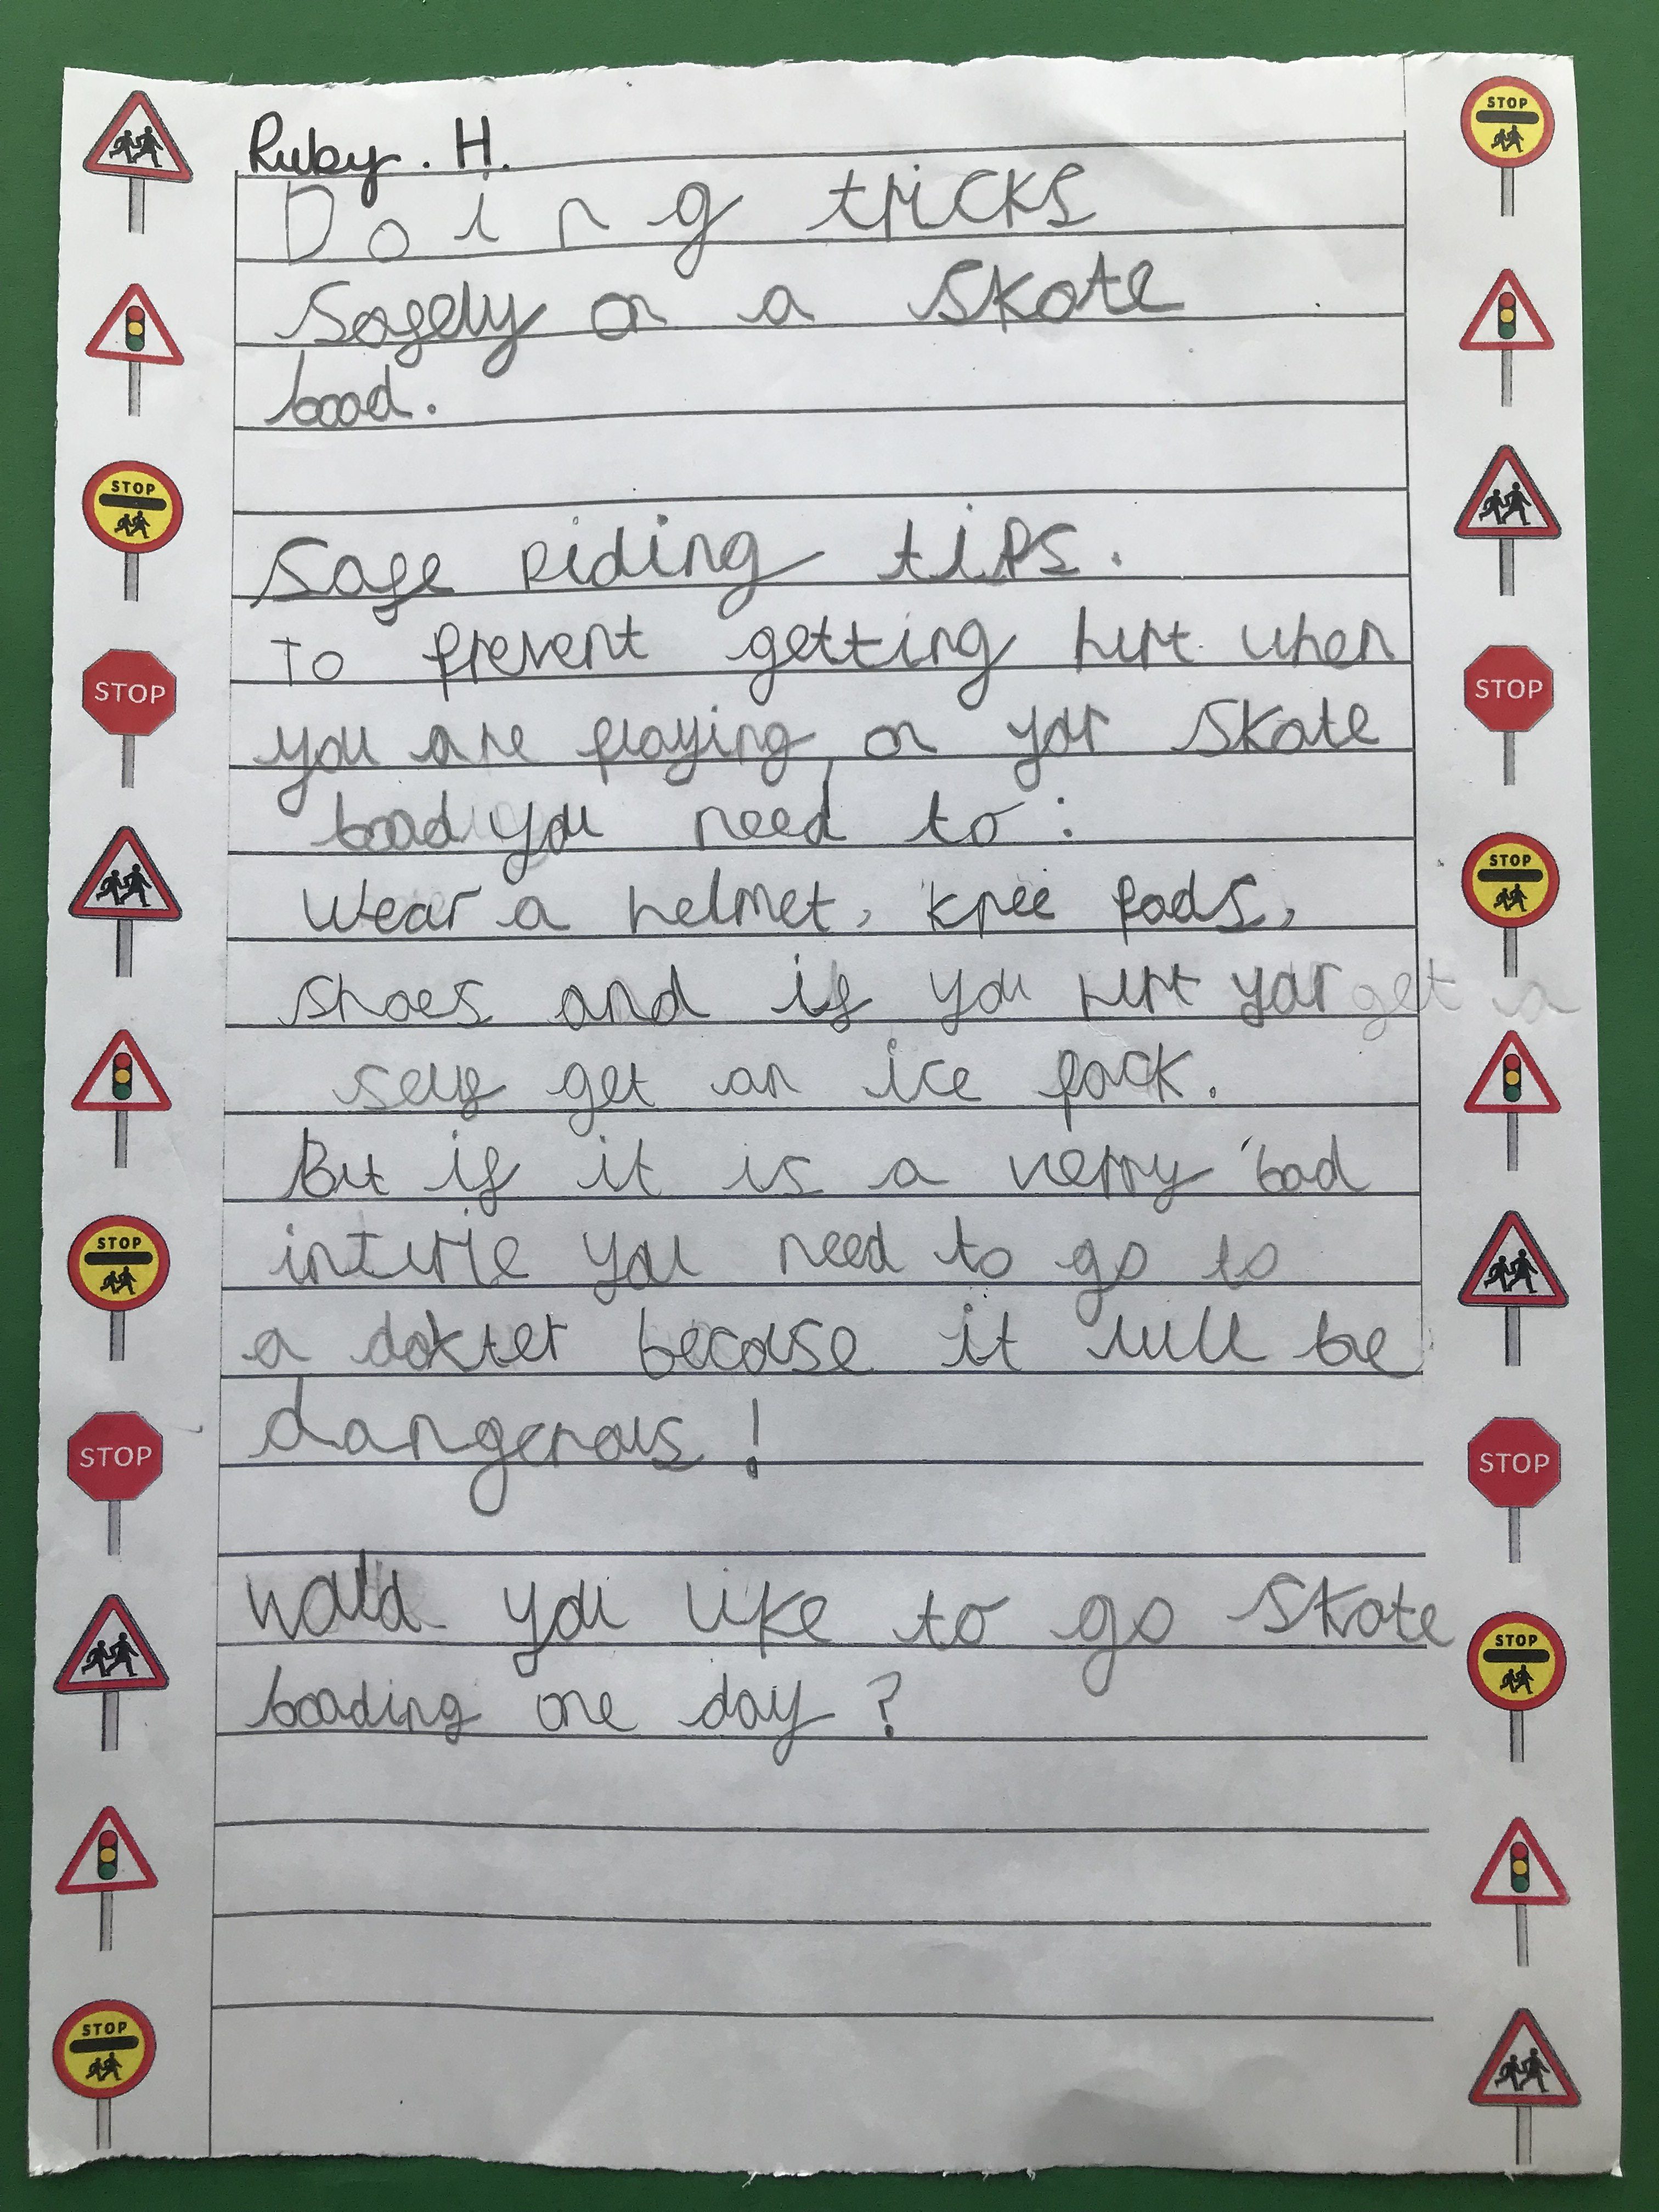 Ruby. H.
Doing tricks
Safely on a skate
boad.
Safe riding tips.
To prevent getting hurt when
you are playing on your skate
boad you need to:
Wear a helmet, knee pads,
shoes and if you hurt your get a
self get an ice pack.
But if it is a verry bad
you need to go to
a dokter becase it will be
dangerous!
Would you like to go skate
boading one day?
STOP
STOP
STOP
STOP
STOP
STOP
STOP
STOP
STOP